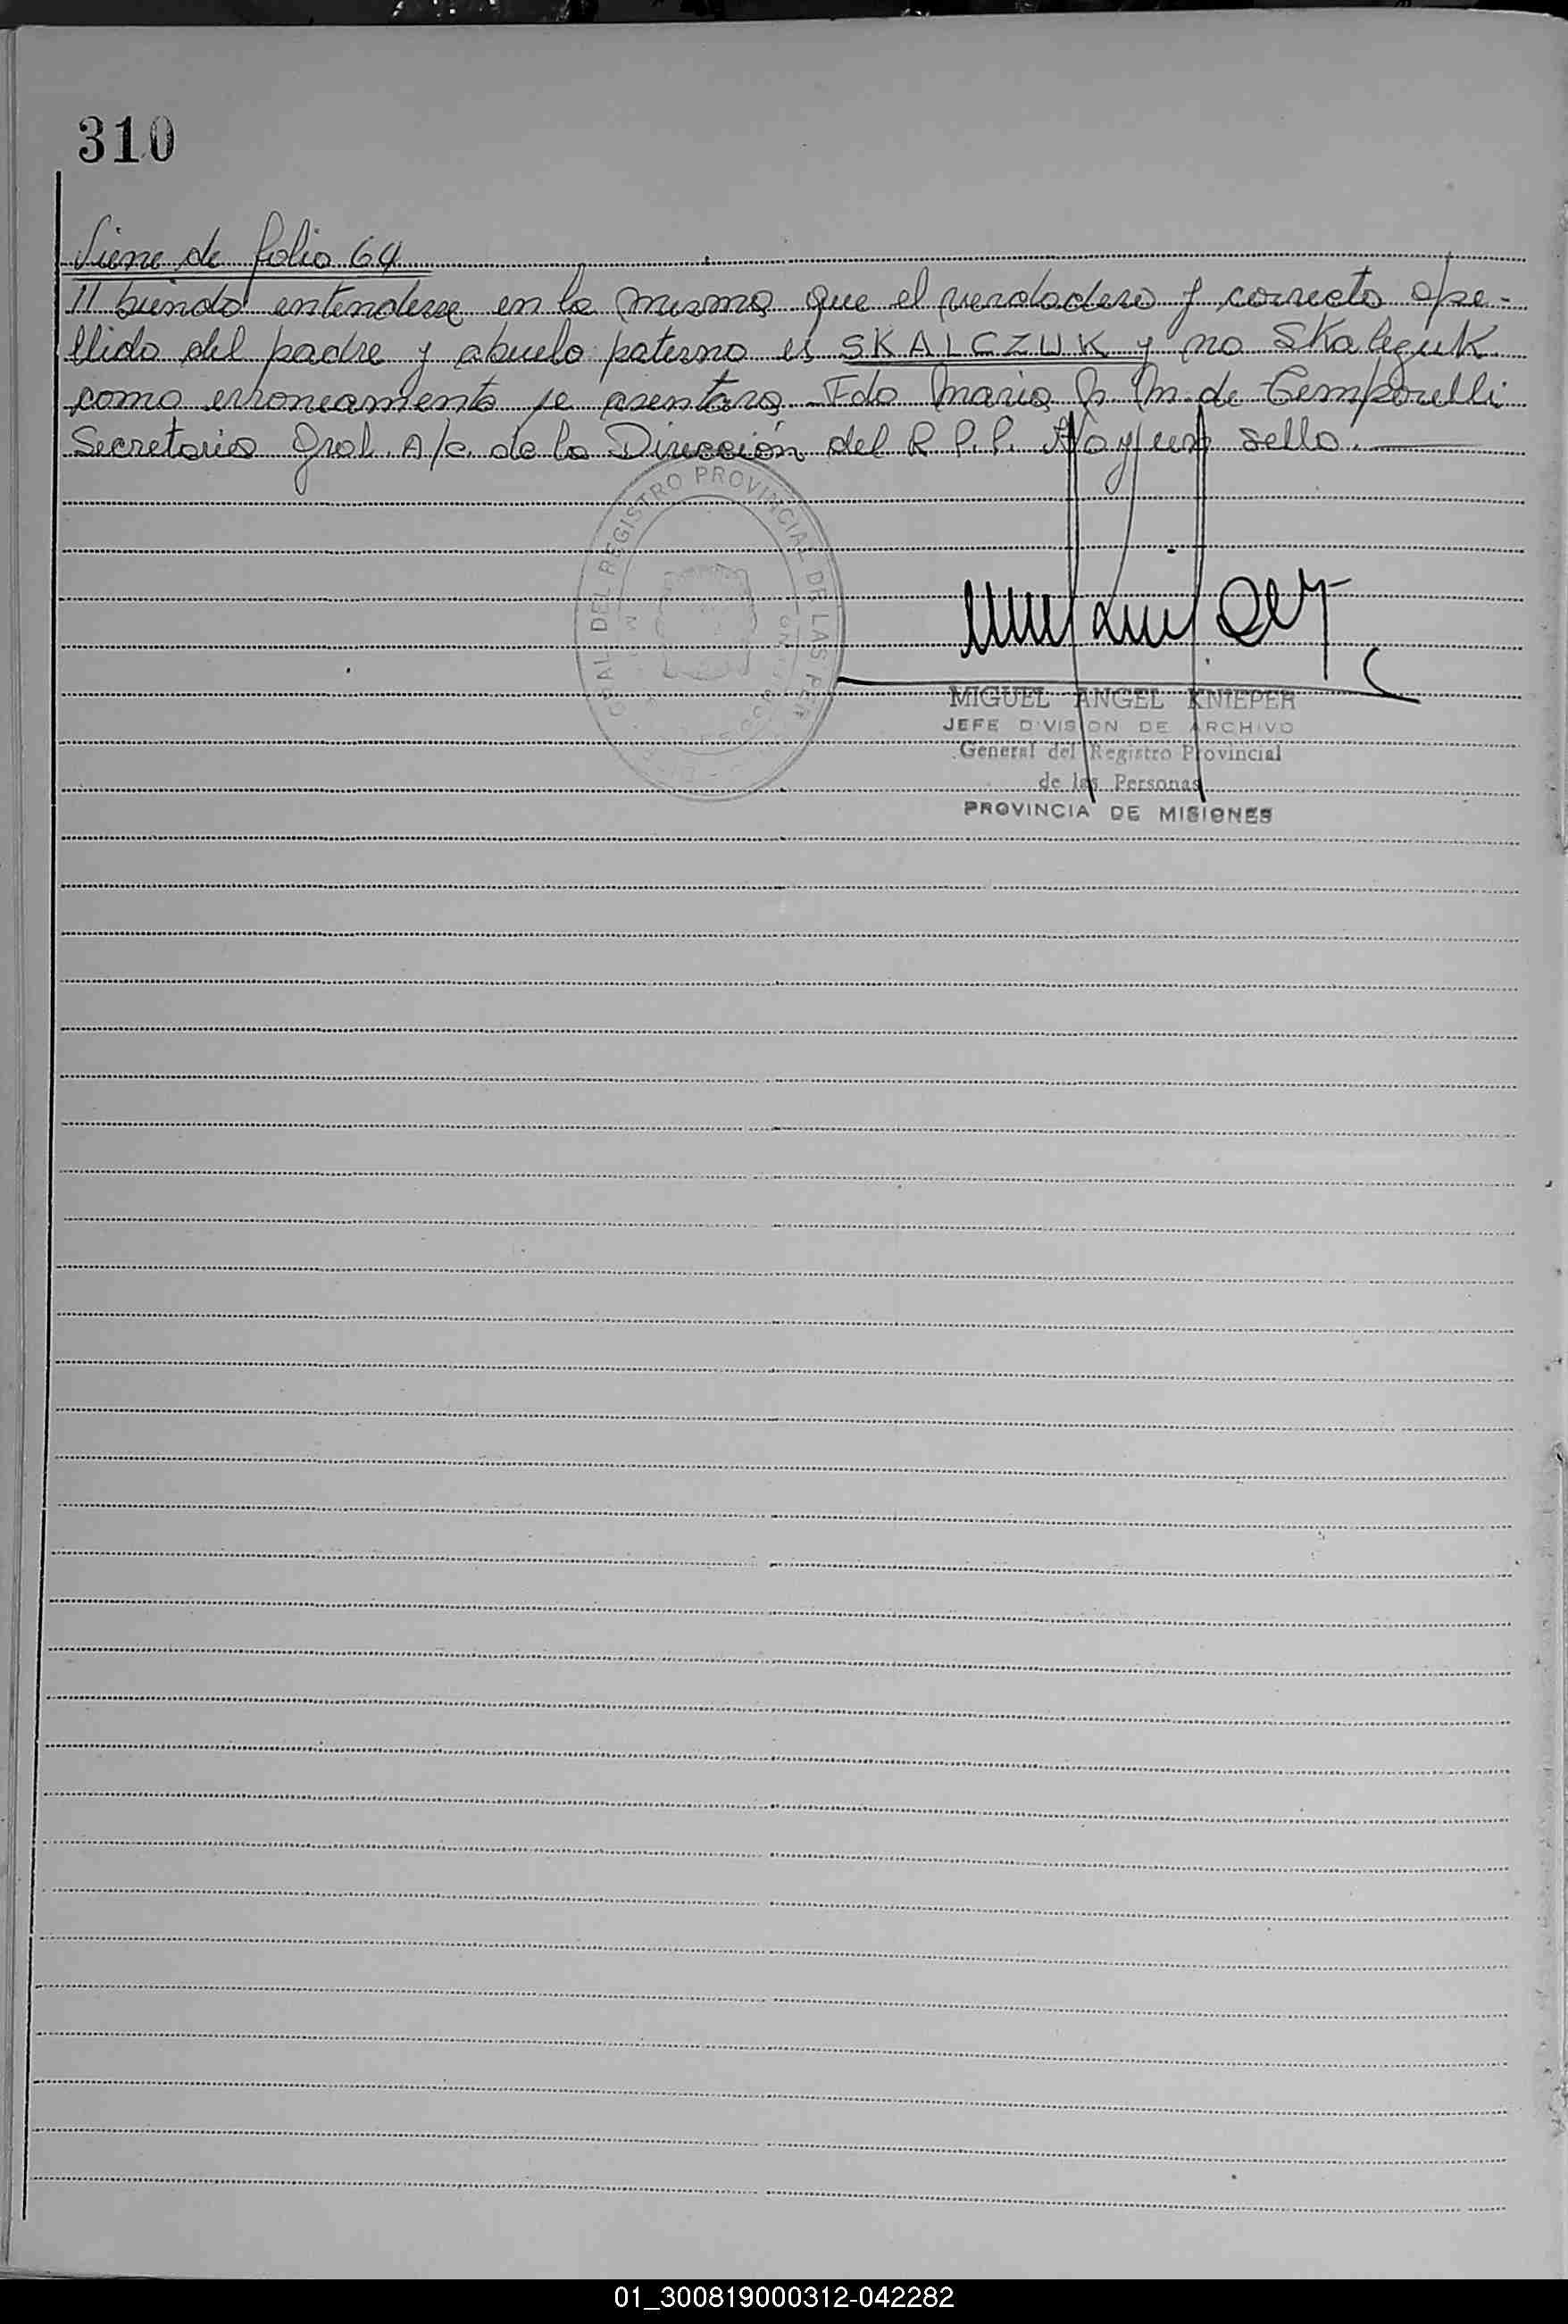 310
Viene de folio 64
// biendo entenderse en la misma que el verdadero y correcto ape-
llido del padre y abuelo paterno es SKALCZUK y no Skaleguk
como erroneamente se asentara. Fdo Maria M. de Temporelli
Secretaria Gral. A/c. de la Dirección del R.P.P. Hay un sello.
GRAL DEL REGISTRO PROVINCIAL DE LAS PER
MIGUEL ANGEL KNIEPER
JEFE DIVISION DE ARCHIVO
General del Registro Provincial
de las Personas
PROVINCIA DE MISIONES
01_300819000312-042282